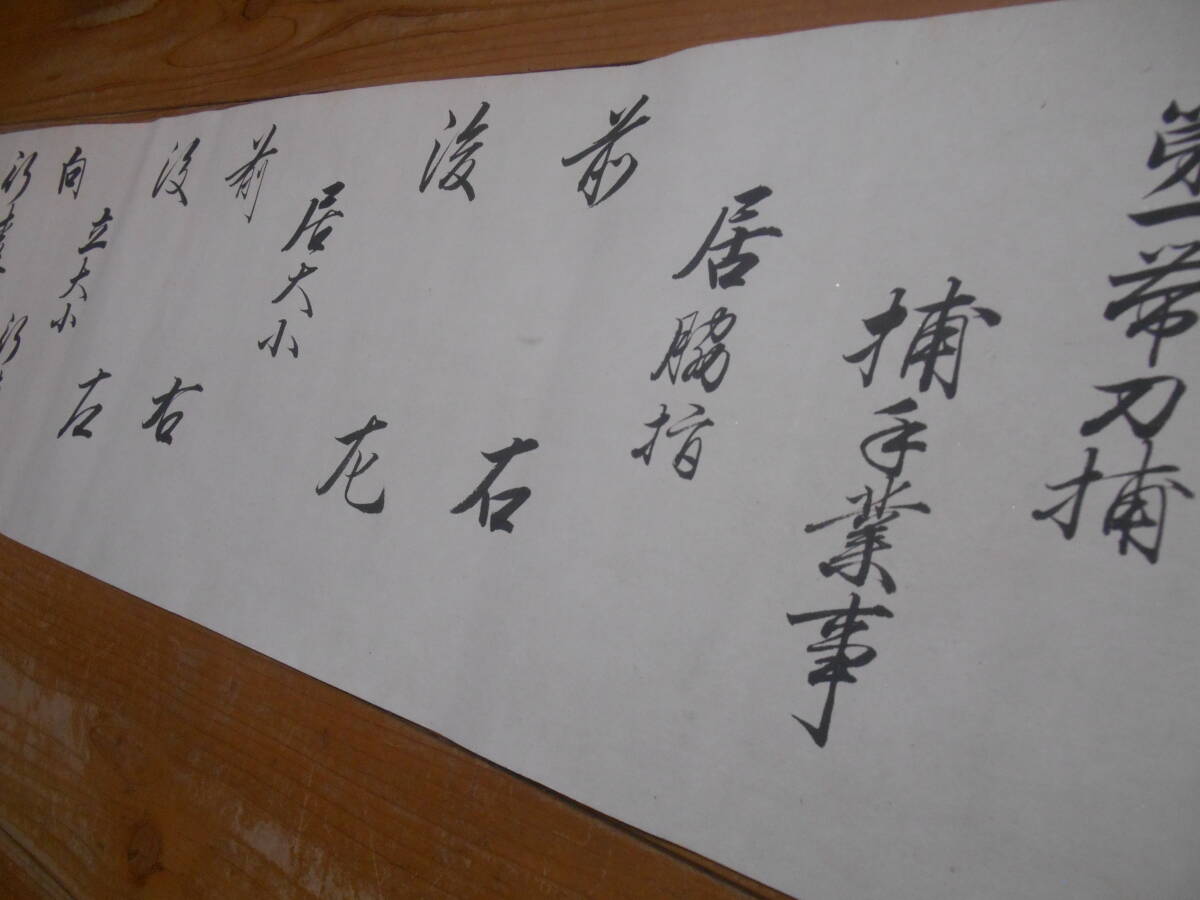 第一帯刀捕
捕手業事
居脇指
前 右
後 左
居大小
前 右
後 左
立大小
向
行